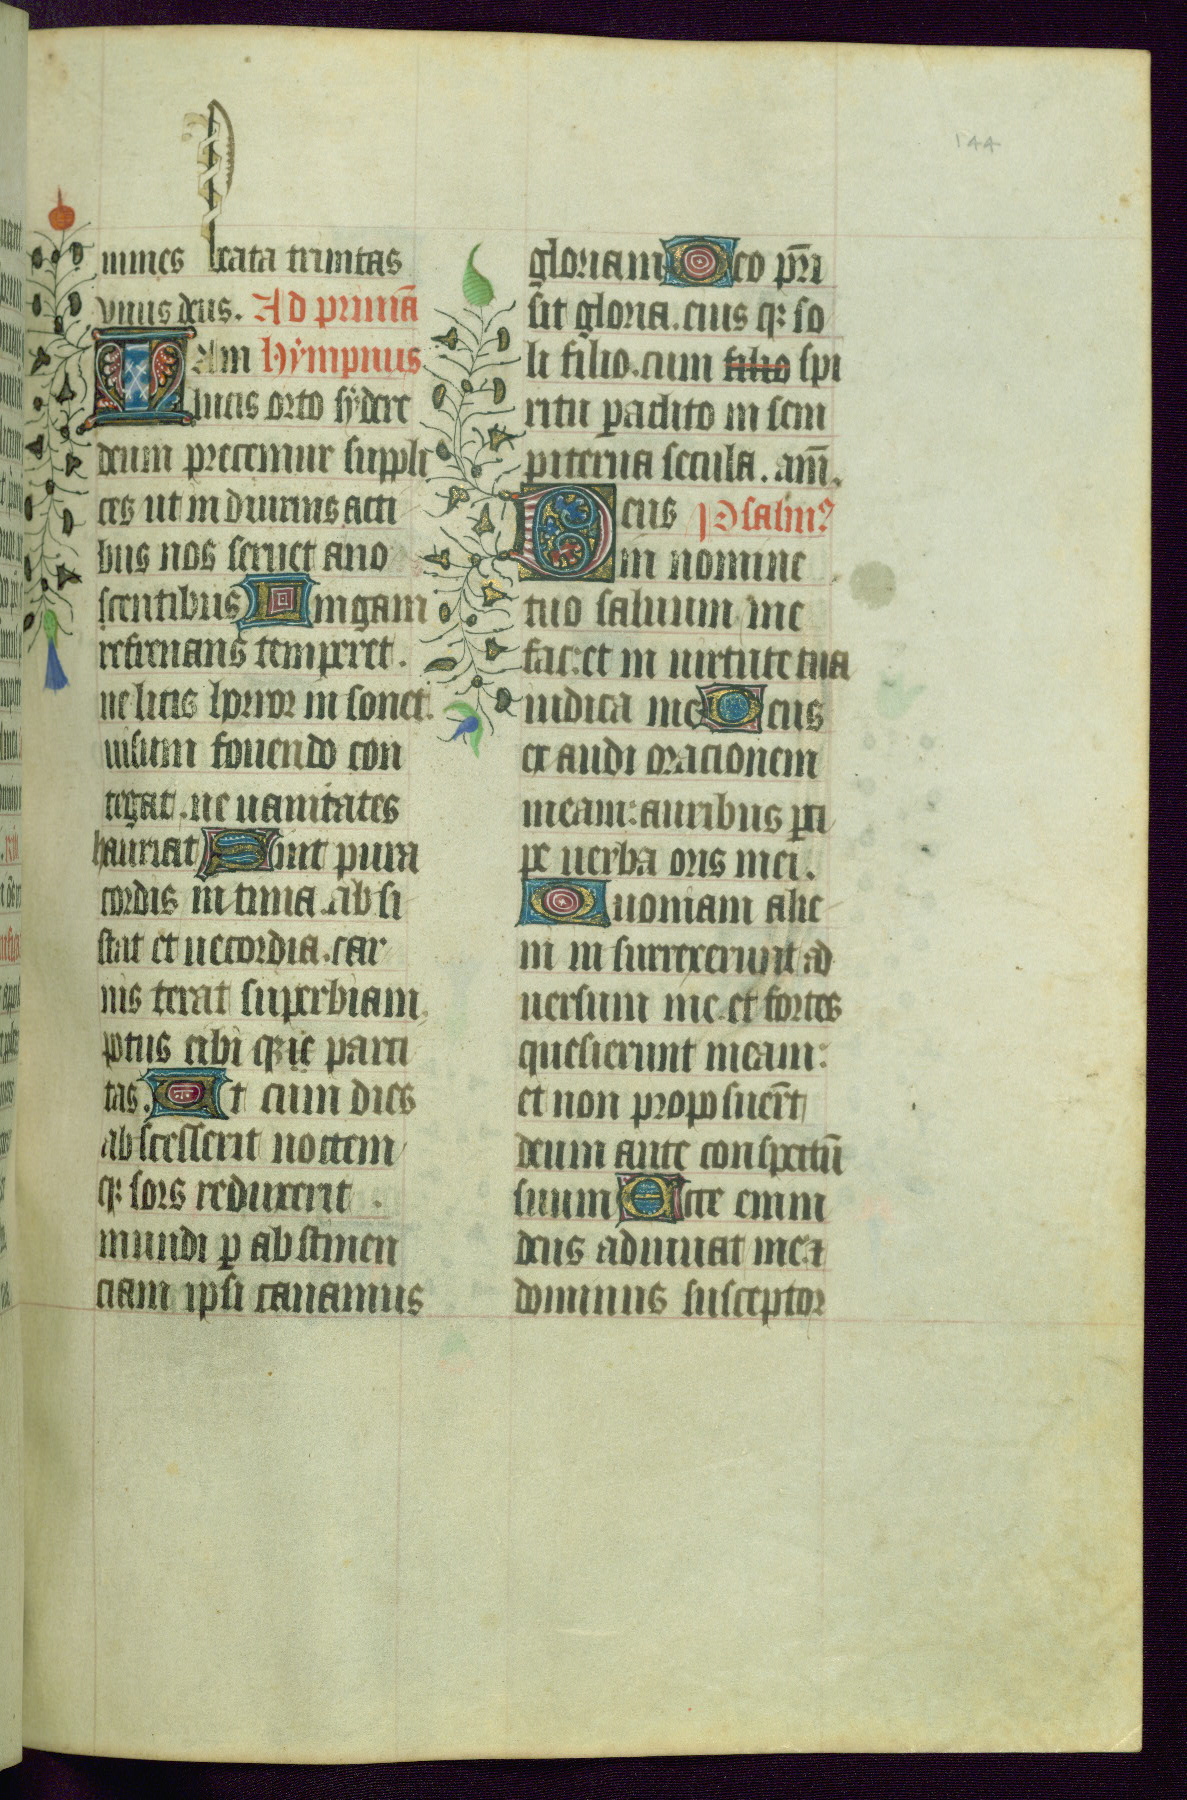 144
nunies beata trinitas
vnus deus. Ad primā
Iam hÿmpnus
lucis orto sÿdere
deum precemur suppli
ces ut in diurnis acti
bus nos seruet a no
scentibus Lingam
refrenans temperet.
ne litis horror in sonet.
uisum fouendo con
tegat. ne uanitates
hauriat Sint pura
cordis in tima. ab si
stat et uecordia. car
nis terat superbiam
potus cibi q; ie parci
tas. Ut cum dies
ab scesserit noctem
q; sors reduxerit.
mundi p ab stinen
ciam ipsi canamus
gloriam Deo pr̄i
sit gloria. eius q; so
li filio. cum filio spi
ritu paclito in sem
piterna secula. am̄.
Deus Psalmꝰ
in nomine
tuo saluum me
fac: et in uirtute tua
iudica me Deus
ex audi oracionem
meam: auribus pci
pe uerba oris mei.
Quoniam alie
ni in surrexerunt ad
uersum me. et fortes
quesierunt meam:
et non proposuer̄t
deum ante conspectū
suum Ecce enim
deus adiuuat me. ⁊
dominus susceptor